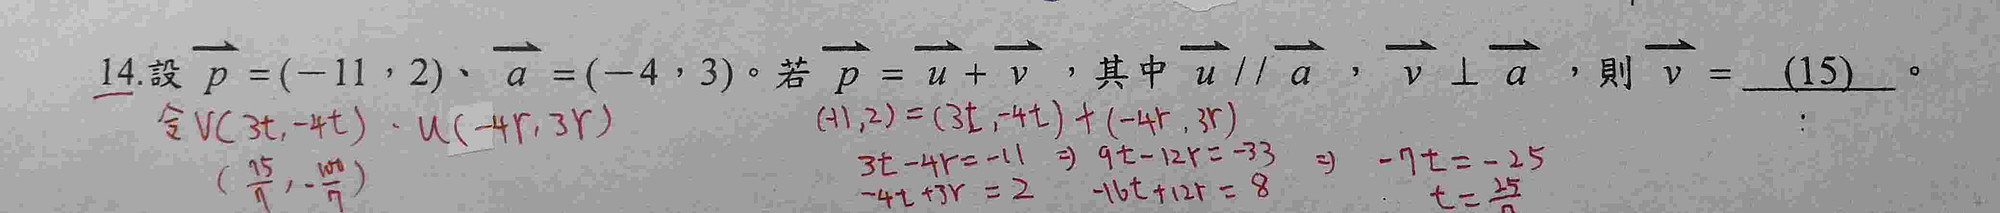 14.設 p = (−11,2)、a = (−4,3)。若 p = u + v,其中 u // a,v ⊥ a,則 v = (15) 。
令V(3t,-4t)、U(-4r,3r) (-11,2) = (3t,-4t) + (-4r,3r)
3t-4r=-11 ⇒ 9t-12r=-33 ⇒ -7t=-25
(75/7, -100/7) -4t+3r=2 -16t+12r=8 t=25/7